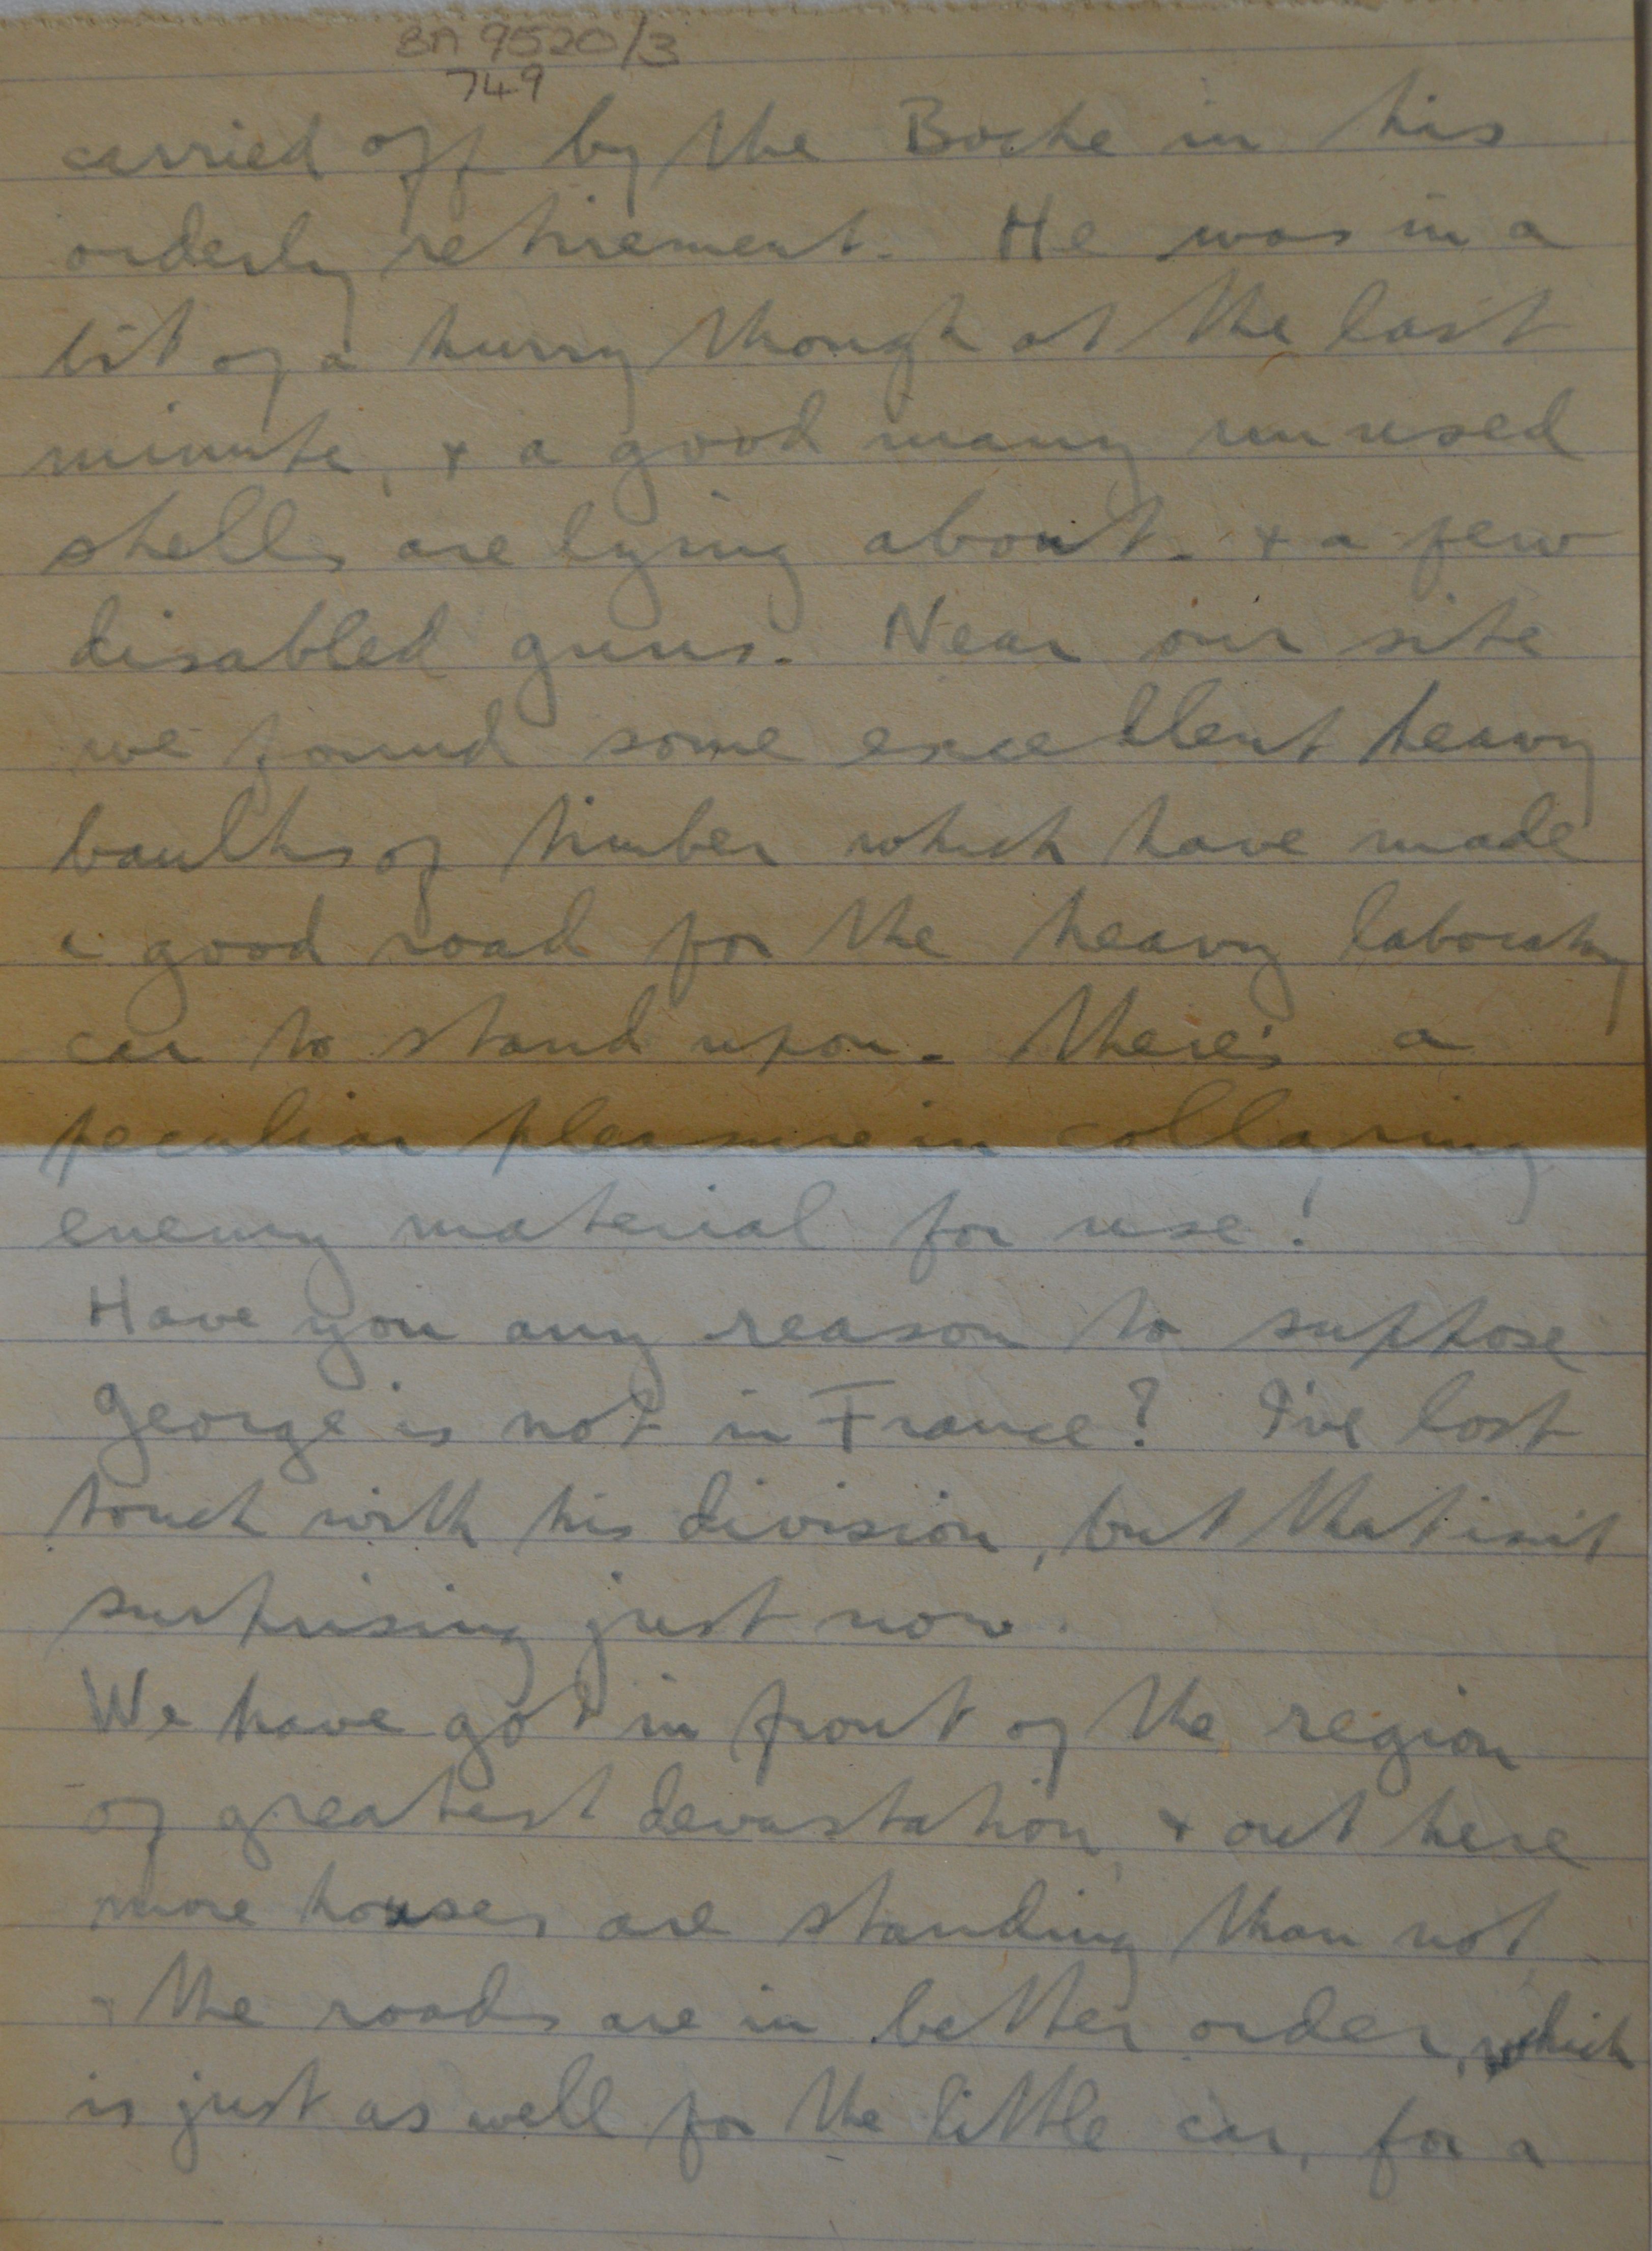 BA 9520/3
749
carried off by the Boche in his
orderly retirement. He was in a
bit of a hurry though at the last
minute, & a good many unused
shells are lying about. & a few
disabled guns. Near our site
we found some excellent heavy
baulks of timber which have made
a good road for the heavy laboratory
car to stand upon. There's a
peculiar pleasure in collaring
enemy material for use!
Have you any reason to suppose
George is not in France? I've lost
touch with his division, but that isn't
surprising just now.
We have got in front of the region
of greatest devastation, & out here
more houses are standing than not,
- the roads are in better order, which
is just as well for the little car, for a